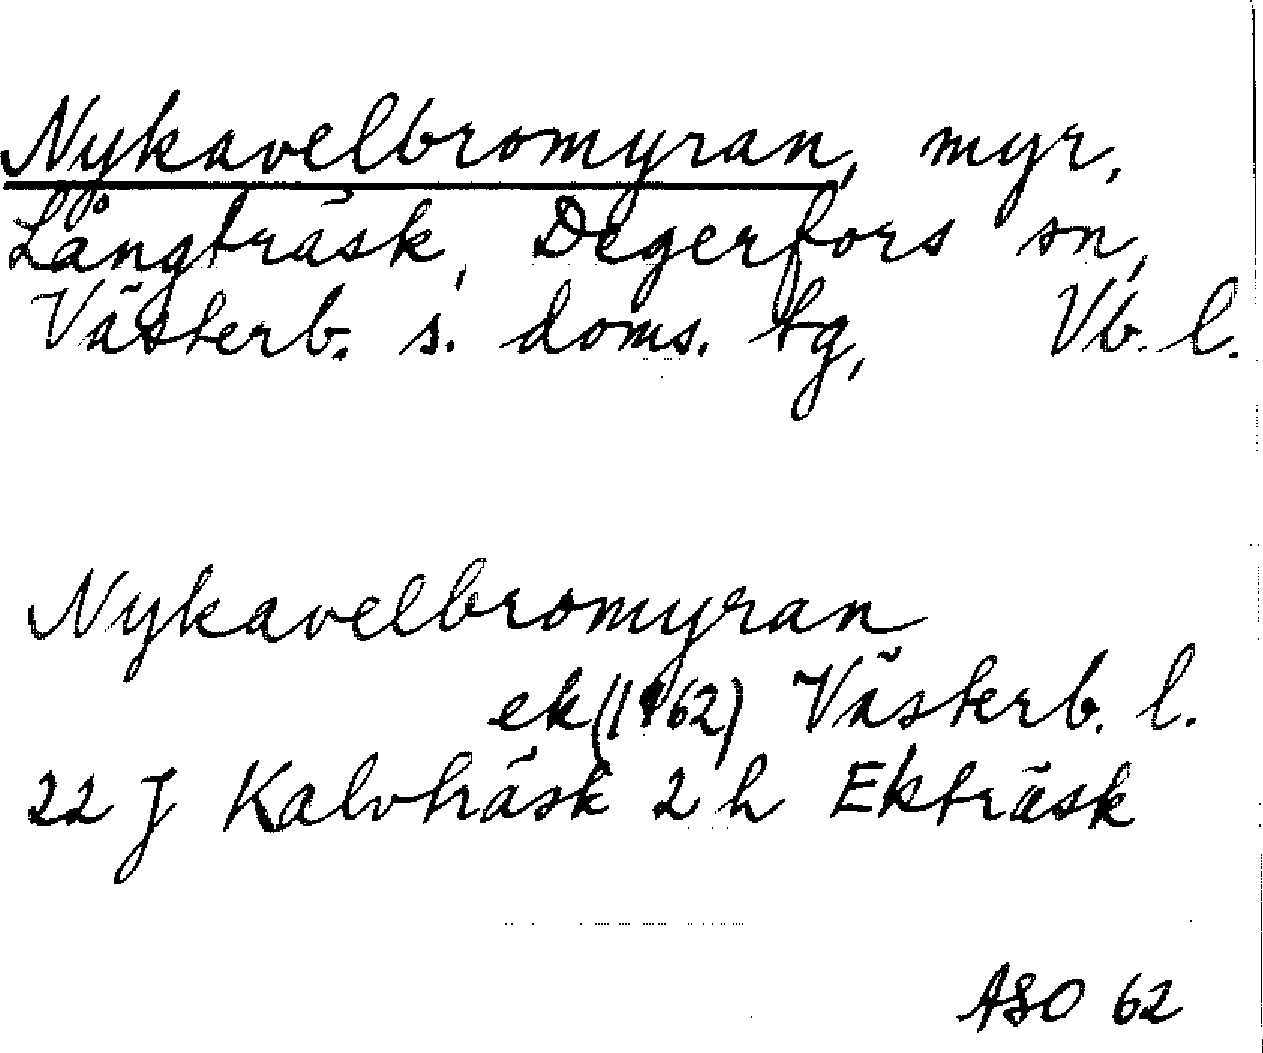 Nykavelbromyran, myr,
Långträsk, Degerfors sn,
Västerb. s. doms. tg, Vb. l.
Nykavelbromyran
ek (1962) Västerb. l.
22 J Kalvträsk 2 h Ekträsk
ASO 62